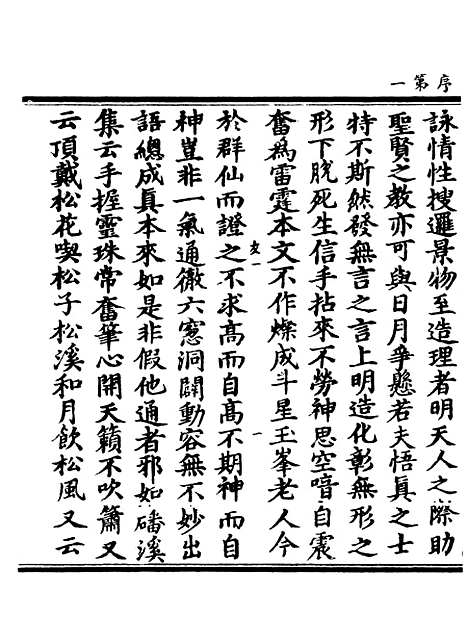 序第一
詠情性搜邏景物至造理者明天人之際助
聖賢之教亦可與日月爭懸若夫悟真之士
特不斯然發無言之言上明造化彰無形之
形下脫死生信手拈來不勞神思空喑自震
奮為雷霆本文不作燦成斗星玉峯老人今
友一 一
於群仙而證之不求高而自高不期神而自
神豈非一氣通徹六窓洞闢動容無不妙出
語總成真本來如是非假他通者邪如磻溪
集云手握靈珠常奮筆心開天籟不吹簫又
云頂戴松花喫松子松溪和月飲松風又云